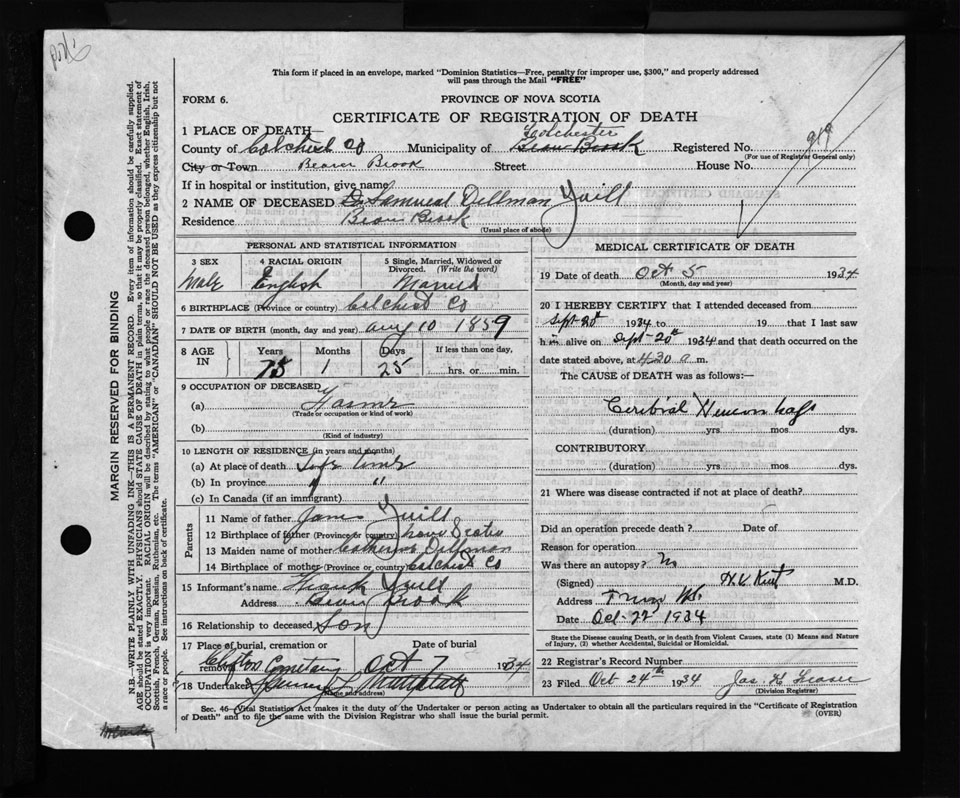 This form if placed in an envelope, marked "Dominion Statistics—Free, penalty for improper use, $300," and properly addressed
will pass through the Mail "FREE"
FORM 6.
PROVINCE OF NOVA SCOTIA
CERTIFICATE OF REGISTRATION OF DEATH
1 PLACE OF DEATH—
Colchester
County of Colchest Co Municipality of Beaver Brook Registered No.
919
(For use of Registrar General only)
City or Town Beaver Brook Street House No.
If in hospital or institution, give name
2 NAME OF DECEASED Samueal Dellman Yuill
Residence Beaver Brook
(Usual place of abode)
PERSONAL AND STATISTICAL INFORMATION
3 SEX 4 RACIAL ORIGIN 5 Single, Married, Widowed or
Divorced. (Write the word)
Male English Married
6 BIRTHPLACE (Province or country) Colchest Co
7 DATE OF BIRTH (month, day and year) Aug 10 1859
8 AGE IN Years Months Days If less than one day,
75 1 25 hrs. or min.
9 OCCUPATION OF DECEASED
(a) Farmer
(Trade or occupation or kind of work)
(b)
(Kind of industry)
10 LENGTH OF RESIDENCE (in years and months)
(a) At place of death Life time
(b) In province " "
(c) In Canada (if an immigrant)
Parents
11 Name of father James Yuill
12 Birthplace of father (Province or country) Nova Scotia
13 Maiden name of mother Catherine Dellman
14 Birthplace of mother (Province or country) Colchest Co
15 Informant's name Frank Yuill
Address Beaver Brook
16 Relationship to deceased Son
17 Place of burial, cremation or Date of burial
removal Clifton Cemetary Oct 7 1934
18 Undertaker
(Name and address)
MEDICAL CERTIFICATE OF DEATH
19 Date of death Oct 5 1934
(Month, day and year)
20 I HEREBY CERTIFY that I attended deceased from
Sept-20th 1934 to 19 that I last saw
him alive on Sept-20th 1934 and that death occurred on the
date stated above, at 4.30 a m.
The CAUSE OF DEATH was as follows:—
Cerebral Hemorrhage
(duration) yrs. mos. dys.
CONTRIBUTORY
(duration) yrs. mos. dys.
21 Where was disease contracted if not at place of death?
Did an operation precede death? Date of
Reason for operation
Was there an autopsy? No
(Signed) H.V. Kent M.D.
Address Truro N.S.
Date Oct-22 1934
State the Disease causing Death, or in death from Violent Causes, state (1) Means and Nature
of Injury, (2) whether Accidental, Suicidal or Homicidal.
22 Registrar's Record Number
23 Filed Oct 24th 1934 Jas. H.
(Division Registrar)
Sec. 46—Vital Statistics Act makes it the duty of the Undertaker or person acting as Undertaker to obtain all the particulars required in the "Certificate of Registration
of Death" and to file the same with the Division Registrar who shall issue the burial permit. (OVER)
MARGIN RESERVED FOR BINDING
N.B. WRITE PLAINLY WITH UNFADING INK—THIS IS A PERMANENT RECORD. Every item of information should be carefully supplied.
AGE should be stated EXACTLY. PHYSICIANS should STATE CAUSE OF DEATH in plain terms, so that it may be properly classified. Exact statement of
OCCUPATION is very important. RACIAL ORIGIN will be described by stating to what people or race the deceased person belonged, whether English, Irish,
Scottish, French, German, Russian, Ruthenian, etc. The terms "AMERICAN" or "CANADIAN" SHOULD NOT BE USED as they express citizenship but not
a race or people. See instructions on back of certificate.